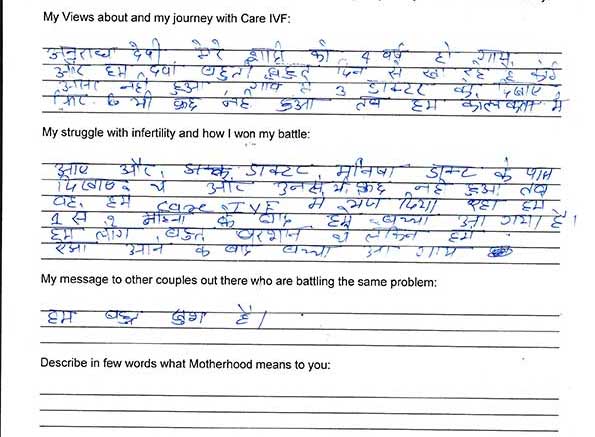 My Views about and my journey with Care IVF:
देवी मेरे शादी को 4 वर्ष हो गाय
और हम दवा बहुतो दिन से खा रहे है कोई
नही हुआ गाव मे 3 डाक्टर को दिखाए
फिर भी कुछ नह हुआ तब हम कोलकता मे
My struggle with infertility and how I won my battle:
आए और डाक्टर मनिषा के पास
दिखाए थे और उनसे भी कुछ नह हुआ तब
वह हम care IVF मे भेज दिया यहा हम
1 से 2 महिना के बाद हम बच्चा आ गया है।
हम लोग बहुत परशान थे लेकिन हम
आने के बाद बच्चा आ गाय
My message to other couples out there who are battling the same problem:
हम बहुत खुश है।
Describe in few words what Motherhood means to you: